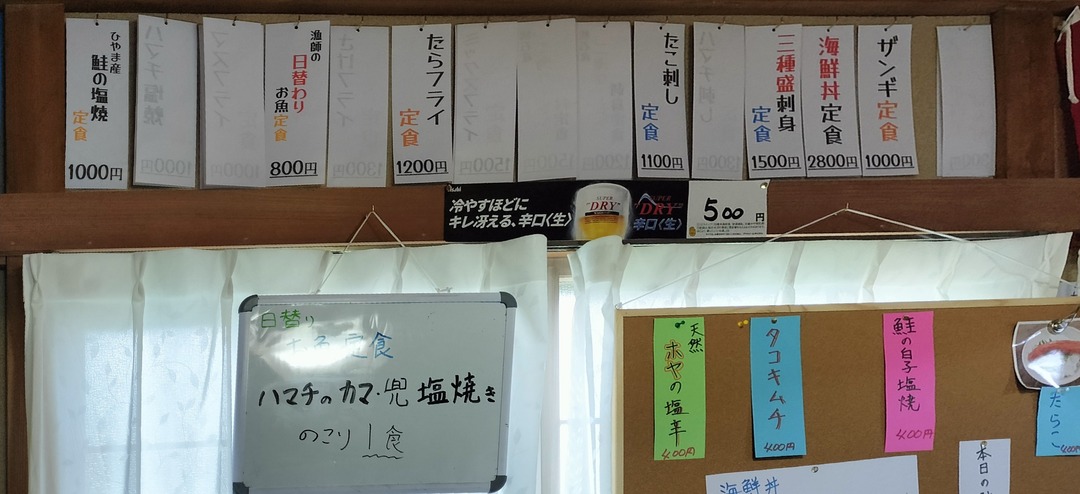 ひやま産
鮭の塩焼
定食
1000円
漁師の
日替わり
お魚定食
800円
たらフライ
定食
1200円
たこ刺し
定食
1100円
三種盛刺身
定食
1500円
海鮮丼定食
2800円
ザンギ定食
1000円
Asahi
冷やすほどに
キレ冴える、辛口〈生〉
SUPER
"DRY"
SUPER
"DRY"
辛口〈生〉
500円
日替り
定食
ハマチのカマ・兜 塩焼き
のこり 1食
天然
ホヤの塩辛
400円
タコキムチ
400円
鮭の白子塩焼
400円
たらこ
400円
海鮮丼
本日の